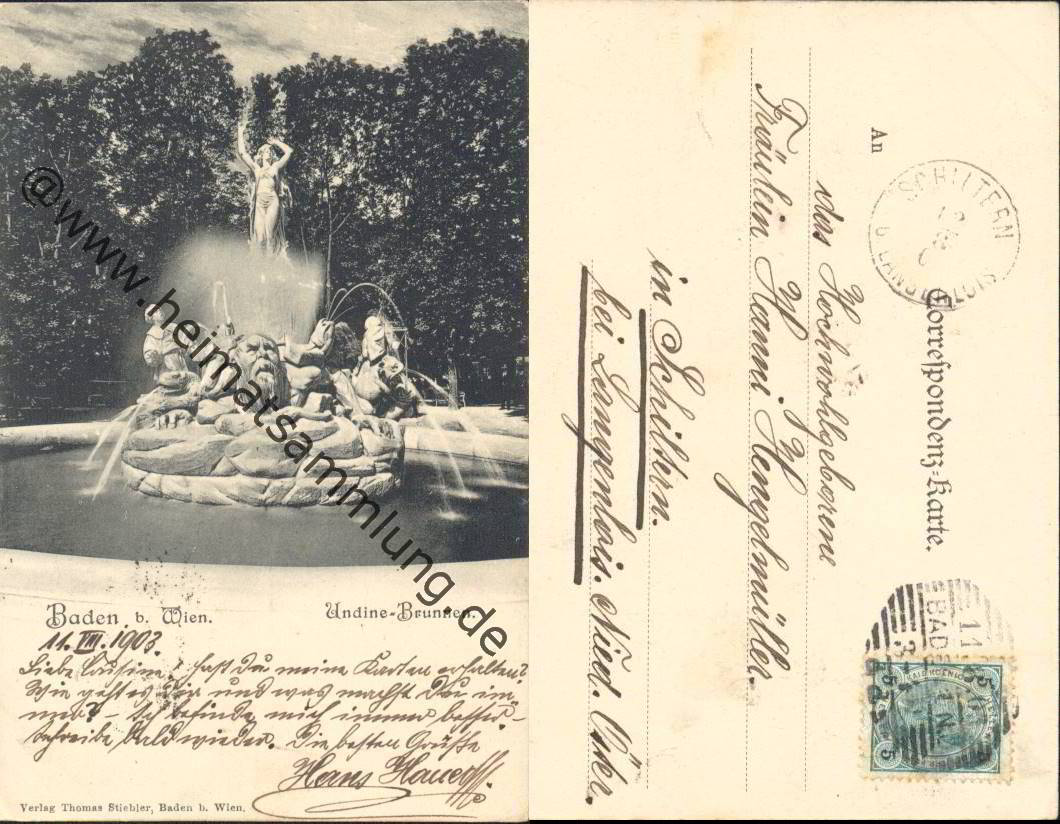 @www.heimatsammlung.de
Baden b. Wien.
Undine-Brunnen.
11. VIII. 1903.
Liebe Cousine! Hast Du meine Karten erhalten?
Wie geht es Dir und was machst Du im-
mer? – Ich befinde mich immer besser. –
Schreibe bald wieder. Die besten Grüße
Hans
Verlag Thomas Stiebler, Baden b. Wien.
SCHILTERN
Correspondenz-Karte.
An
das Hochwohlgeborene
Fräulein Hanni Hengelmüller
in Schiltern.
bei Langenlois. Nied. Östr.
BADEN
11
5
5